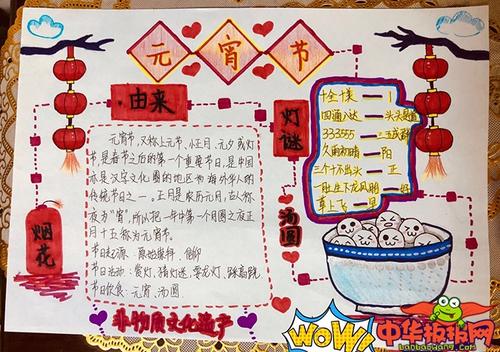 元宵节
由来
元宵节,又称上元节、小正月、元夕或灯
节,是春节之后的第一个重要节日,是中国
亦是汉字文化圈的地区和海外华人的
传统节日之一。正月是农历元月,古人称
夜为“宵”,所以把一年中第一个月圆之夜正
月十五称为元宵节。
节日起源:原始崇拜、信仰
节日活动:赏灯、猜灯迷、耍龙灯、踩高跷
节日饮食:元宵、汤圆
烟花
非物质文化遗产
灯谜
四通八达——头头是道
333555——三五成群
久雨初晴——阳
三个十不出头——正
草上飞——早
汤圆
WOW!
中华板报网
banbaowang.com